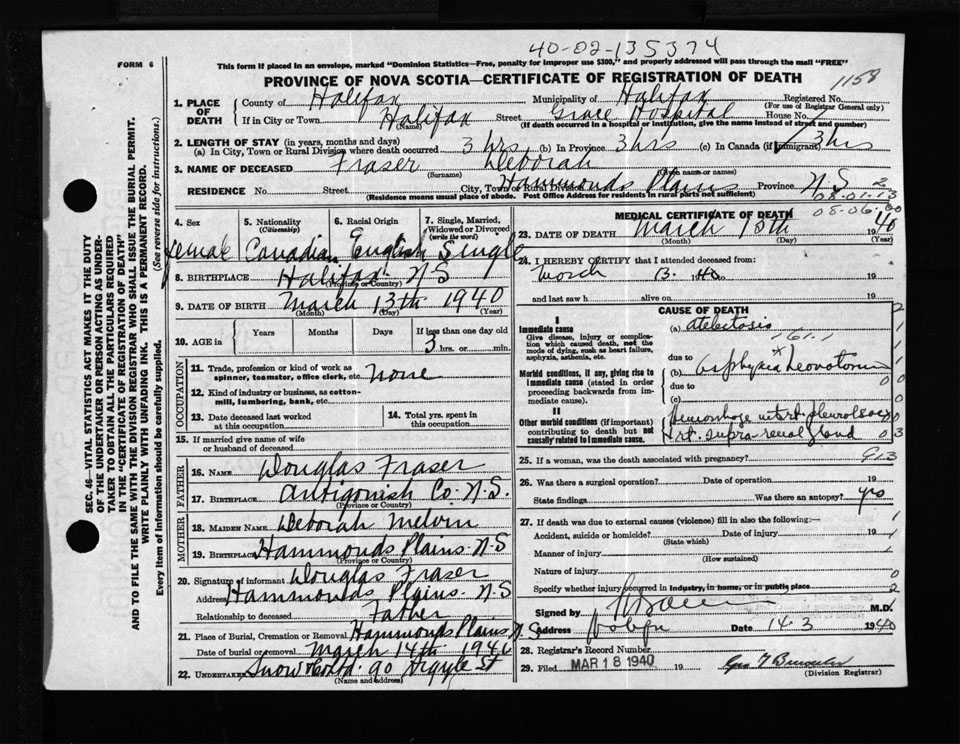 40-02-135374
FORM 6
This form if placed in an envelope, marked "Dominion Statistics—Free, penalty for improper use $300," and properly addressed will pass through the mail "FREE"
PROVINCE OF NOVA SCOTIA—CERTIFICATE OF REGISTRATION OF DEATH
1158
1. PLACE OF DEATH
County of Halifax Municipality of Halifax Registered No.
(For use of Registrar General only)
If in City or Town Halifax Street Grace Hospital House No.
(Name) (If death occurred in a hospital or institution, give the name instead of street and number)
2. LENGTH OF STAY (in years, months and days)
(a) In City, Town or Rural Division where death occurred 3 hrs (b) In Province 3 hrs (c) In Canada (if immigrant) 3 hrs
3. NAME OF DECEASED Fraser Deborah
(Surname) (Given name or names)
RESIDENCE No. Street City, Town or Rural Division Hammonds Plains Province N S
(Residence means usual place of abode. Post Office Address for residents in rural parts not sufficient)
SEC. 46—VITAL STATISTICS ACT MAKES IT THE DUTY
OF THE UNDERTAKER OR PERSON ACTING AS UNDER-
TAKER TO OBTAIN ALL THE PARTICULARS REQUIRED
IN THE "CERTIFICATE OF REGISTRATION OF DEATH"
AND TO FILE THE SAME WITH THE DIVISION REGISTRAR WHO SHALL ISSUE THE BURIAL PERMIT.
WRITE PLAINLY WITH UNFADING INK. THIS IS A PERMANENT RECORD.
Every item of information should be carefully supplied. (See reverse side for instructions.)
4. Sex
5. Nationality (Citizenship)
6. Racial Origin
7. Single, Married, Widowed or Divorced (write the word)
Female Canadian English Single
8. BIRTHPLACE Halifax N S
(Province or Country)
9. DATE OF BIRTH March 13th 1940
(Month) (Day) (Year)
10. AGE in Years Months Days If less than one day old
3 hrs. or min.
OCCUPATION
11. Trade, profession or kind of work as spinner, teamster, office clerk, etc. none
12. Kind of industry or business, as cotton-mill, lumbering, bank, etc.
13. Date deceased last worked at this occupation
14. Total yrs. spent in this occupation
15. If married give name of wife or husband of deceased
FATHER
16. NAME Douglas Fraser
17. BIRTHPLACE Antigonish Co. N.S.
(Province or Country)
MOTHER
18. MAIDEN NAME Deborah Melvin
19. BIRTHPLACE Hammonds Plains. N-S
(Province or Country)
20. Signature of informant Douglas Fraser
Address Hammonds Plains. N-S
Relationship to deceased Father
21. Place of Burial, Cremation or Removal Hammonds Plains N.S.
Date of burial or removal March 14th 1940
22. UNDERTAKER Snow & Co Ltd. 90 Argyle St
(Name and address)
08-01
08-06
MEDICAL CERTIFICATE OF DEATH
23. DATE OF DEATH March 13th 40
(Month) (Day) (Year)
24. I HEREBY CERTIFY that I attended deceased from:
March 13. 1940 19
and last saw h alive on 19
CAUSE OF DEATH
I
Immediate cause
Give disease, injury or complication which caused death, not the mode of dying, such as heart failure, asphyxia, asthenia, etc.
(a) atelectasis
161.1
due to
(b) asphyxia neonatorum
Morbid conditions, if any, giving rise to immediate cause (stated in order proceeding backwards from immediate cause).
due to
(c)
II
Other morbid conditions (if important) contributing to death but not causally related to immediate cause.
Hemorrhage into rt. pleural
rt. supra-renal gland
25. If a woman, was the death associated with pregnancy?
26. Was there a surgical operation? Date of operation 19
State findings Was there an autopsy? yes
27. If death was due to external causes (violence) fill in also the following:—
Accident, suicide or homicide? Date of injury 19
(State which)
Manner of injury
(How sustained)
Nature of injury
Specify whether injury occurred in industry, in home, or in public place
Signed by M.D.
Address Date 14.3 1940
28. Registrar's Record Number
29. Filed MAR 18 1940 19
(Division Registrar)